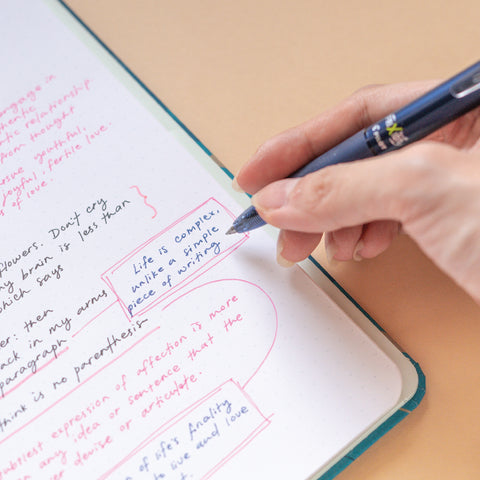 engage in
authentic
relationship
from thought
pursue youthful,
joyful, fertile love.
s of love.
flowers. Don't cry
my brain is less than
which says
Life is complex,
unlike a simple
piece of writing
er: then
back in my arms
paragraph
think is no parenthesis
subtlest expression of affection is more
in any idea or sentence that the
ver devise or articulate.
n of life's finality
to live and love